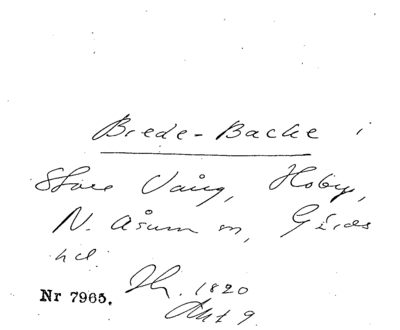 Brede-Backe i
Store Vång, Hoby,
N. Åsum sn, Gärds
hd
Th. 1820
Akt 9
Nr 7965.